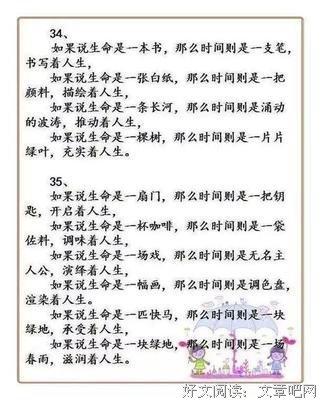 34、
如果说生命是一本书，那么时间则是一支笔，
书写着人生，
如果说生命是一张白纸，那么时间则是一把
颜料，描绘着人生，
如果说生命是一条长河，那么时间则是涌动
的波涛，推动着人生，
如果说生命是一棵树，那么时间则是一片片
绿叶，充实着人生。
35、
如果说生命是一扇门，那么时间则是一把钥
匙，开启着人生，
如果说生命是一杯咖啡，那么时间则是一袋
佐料，调味着人生，
如果说生命是一场戏，那么时间则是无名主
人公，演绎着人生，
如果说生命是一幅画，那么时间则是调色盘，
渲染着人生。
如果说生命是一匹快马，那么时间则是一块
绿地，承受着人生，
如果说生命是一块绿地，那么时间则是一场
春雨，滋润着人生。
好文阅读：文章吧网